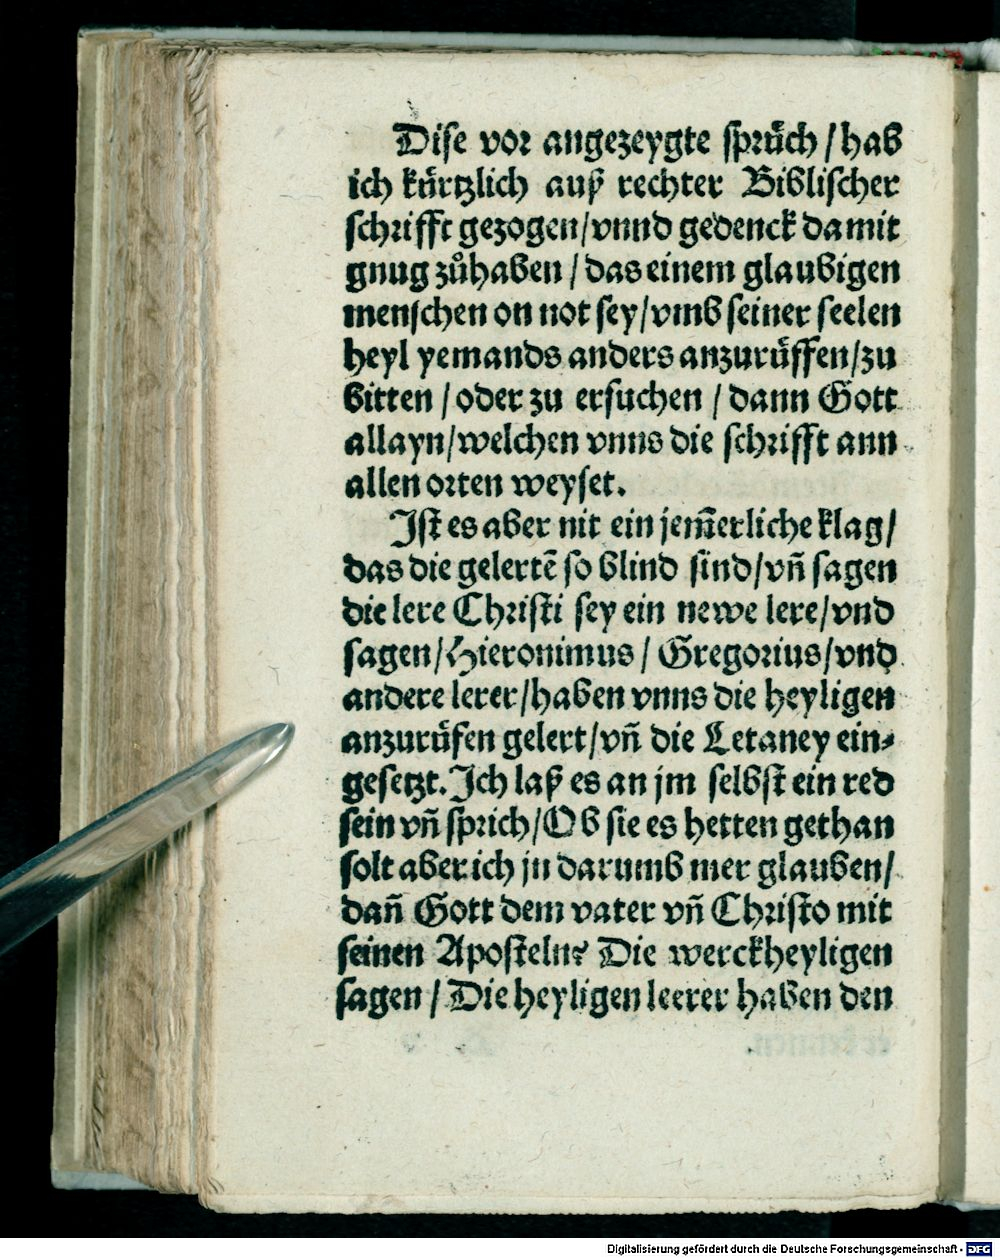 Dise vor angezeygte sprüch / hab
ich kürtzlich auß rechter Biblischer
schrifft gezogen / vnnd gedenck damit
gnug zůhaben / das einem glaubigen
menschen on not sey / vmb seiner seelen
heyl yemands anders anzurüffen / zu
bitten / oder zu ersuchen / dann Gott
allayn / welchen vnns die schrifft ann
allen orten weyset.
Ist es aber nit ein jem̃erliche klag /
das die gelertẽ so blind sind / vñ sagen
die lere Christi sey ein newe lere / vnd
sagen / Hieronimus / Gregorius / vnd
andere lerer / haben vnns die heyligen
anzurüfen gelert / vñ die Letaney ein⸗
gesetzt. Ich laß es an jm selbst ein red
sein vñ sprich / Ob sie es hetten gethan
solt aber ich jn darumb mer glauben /
dañ Gott dem vater vñ Christo mit
seinen Aposteln? Die werckheyligen
sagen / Die heyligen leerer haben den
Digitalisierung gefördert durch die Deutsche Forschungsgemeinschaft - DFG